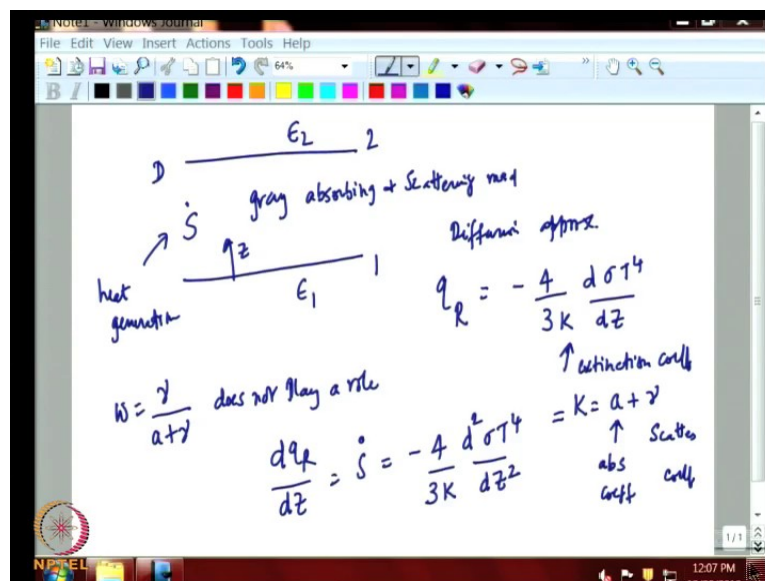 Note1 - Windows Journal
File Edit View Insert Actions Tools Help
64%
B I
ϵ2 2
D
gray absorbing + Scattering med
Ṡ
z
heat generation
ϵ1 1
Diffusion approx.
q_R = - 4/3K dσT⁴/dz
↑ extinction coeff
= K = a + γ
↑ Scatter
abs coeff coeff
ω = γ/(a+γ) does not play a role
dq_R/dz = Ṡ = - 4/3K d²σT⁴/dz²
NPTEL
1/1
12:07 PM